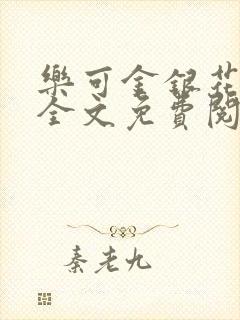 樂可金銀花
全文免費閱
秦老九